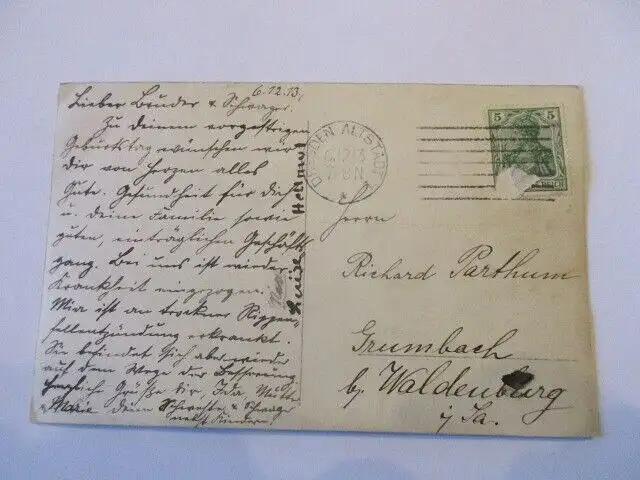 6.12.13.
Lieber Bruder & Schwager.
Zu deinem vorgestrigen
Geburtstag wünschen wir
dir von Herzen alles
Gute. Gesundheit für dich
u. deine Familie sowie
guten, einträglichen Geschäfts
gang. Bei uns ist wieder
Krankheit eingezogen.
ist an trockner Rippen-
fellentzündung erkrankt.
Sie befindet sich aber wieder
auf dem Wege der Besserung
herzliche Grüße dir, Ida, Mutter
deine Schwester & Schwager
nebst Kindern
Hellmut
Luise
DRESDEN ALTSTADT
6.12.13
7-8 N.
*
5 5
Herrn
Richard Parthum
Grumbach
b/ Waldenburg
i/ Sa.